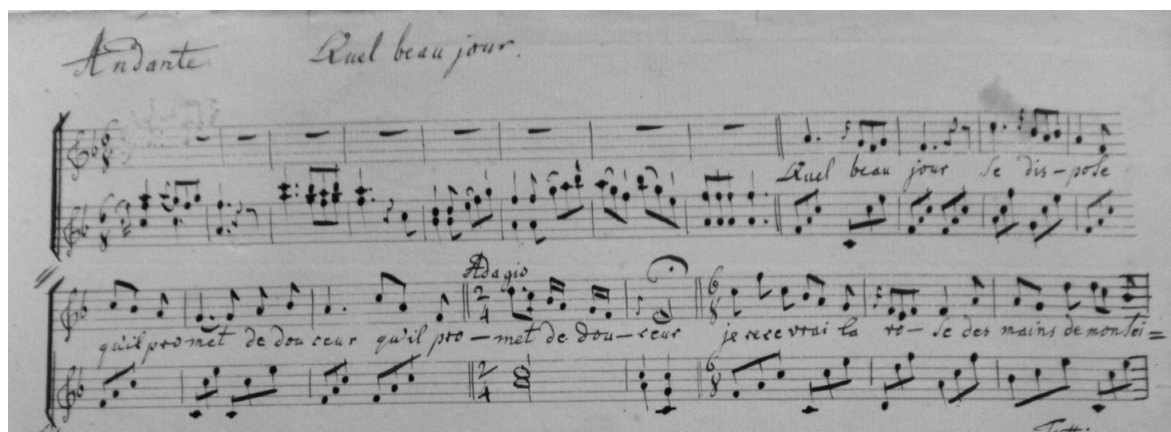 Andante. Quel beau jour.
6 8
6 8
Quel beau jour se dis-pose
Adagio
2 4 6 8
qu'il promet de douceur qu'il pro-met de dou-ceur je recevrai la ro-se des mains de mon sei=
2 4 6 8